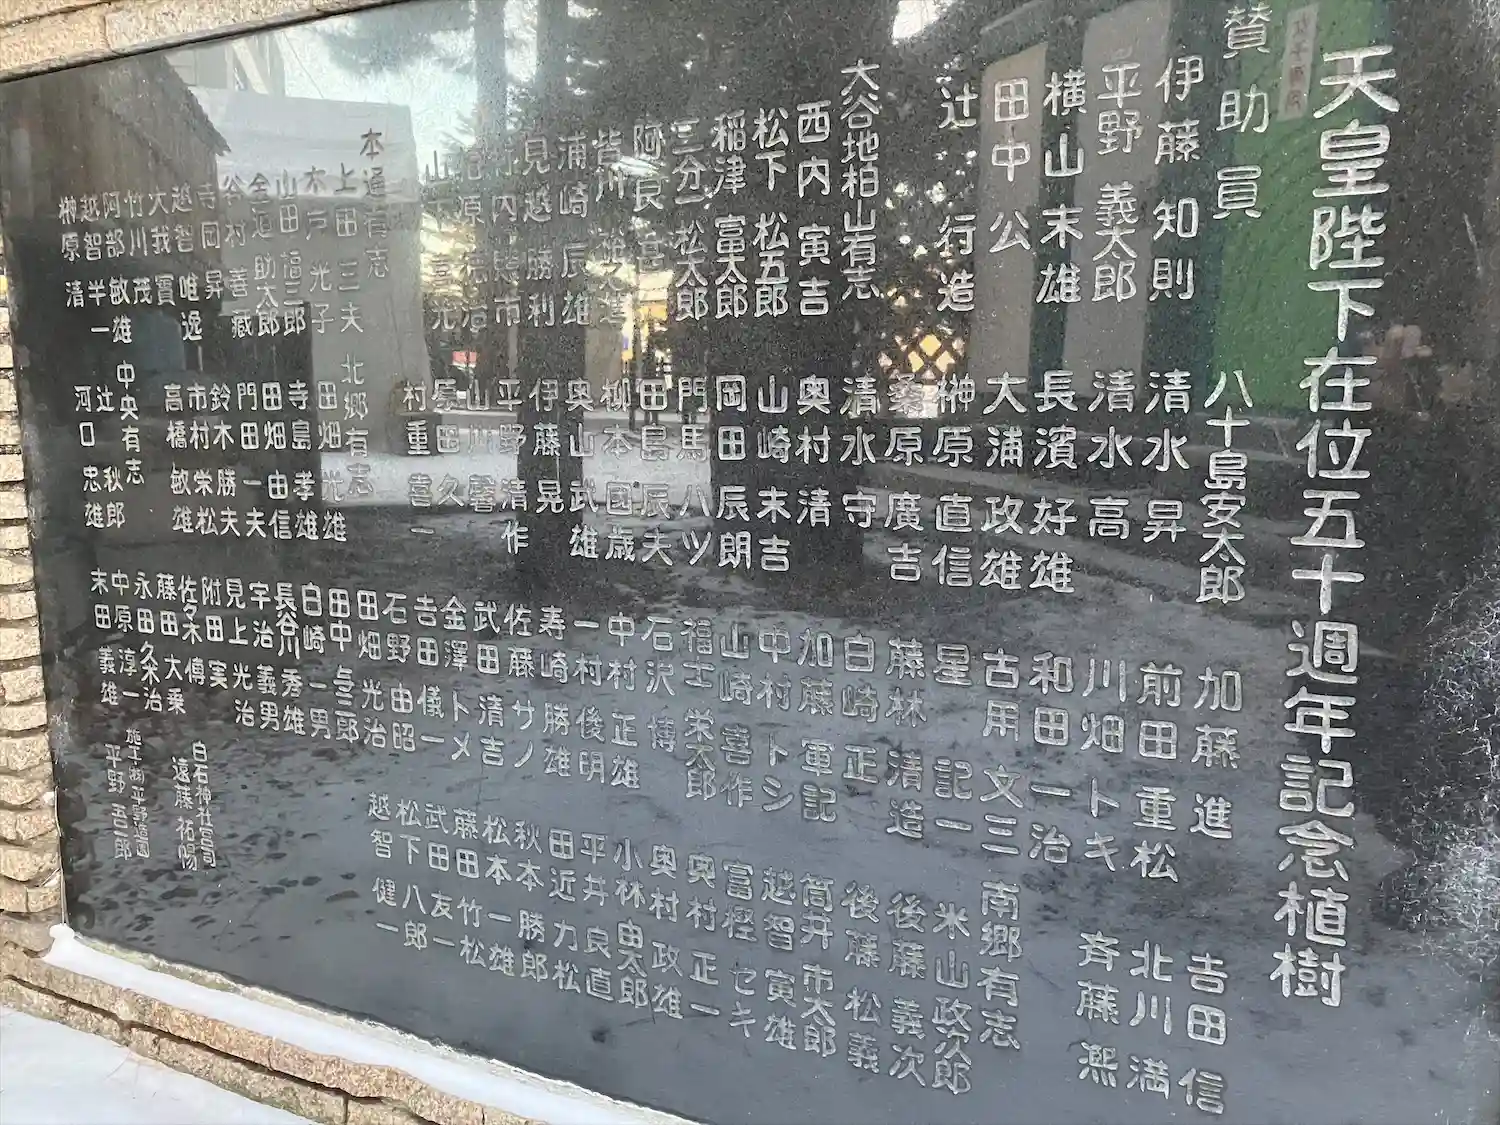 天皇陛下在位五十週年記念植樹
賛助員
八十島安太郎
加藤進
吉田信
伊藤知則
清水昇
前田重松
北川満
平野義太郎
清水高
川畑トキ
斉藤熙
横山末雄
長濱好雄
和田一治
田中公
大浦政雄
古用文三
南郷有志
辻行造
榊原直信
星記一
米山政次郎
桑原廣吉
藤林清造
後藤義次
大谷地柏山有志
清水守
白崎正
後藤松義
西内寅吉
奥村清
加藤軍記
筒井市太郎
松下松五郎
山崎末吉
中村トシ
越智寅雄
稲津富太郎
岡田辰朗
山崎喜作
富樫セキ
三分一松太郎
門馬八ツ
福士栄太郎
奥村正一
阿良
田島辰夫
石沢博
奥村政雄
皆川
柳本國歳
中村正雄
小林由太郎
浦崎辰雄
奥山武雄
一村後明
平井良直
見越勝利
伊藤晃
寿崎勝雄
田近力松
竹内
平野清作
佐藤サノ
秋本勝郎
山川馨
武田清吉
松本一雄
山下喜光
原田久
金澤トメ
藤田竹松
村重喜一
吉田儀一
武田友一
本通有志
石野由昭
松下八郎
上田三夫
北郷有志
田畑光治
越智健一
木戸光子
田畑光雄
田中与三郎
山田福三郎
寺島孝雄
白崎一男
金道助太郎
田畑由信
長谷川秀雄
谷村善藏
門田一夫
宇治義男
寺岡昇
鈴木勝夫
見上光治
越智唯逸
市村栄松
附田実
大我實
高橋敏雄
佐々木傳
竹川茂
藤田大乗
阿部敏雄
中央有志
永田久米治
越智半一
辻秋郎
中原淳一
榊原清
河口忠雄
末田義雄
白石神社宮司
遠藤祐暢
施工㈱平野造園
平野吾一郎